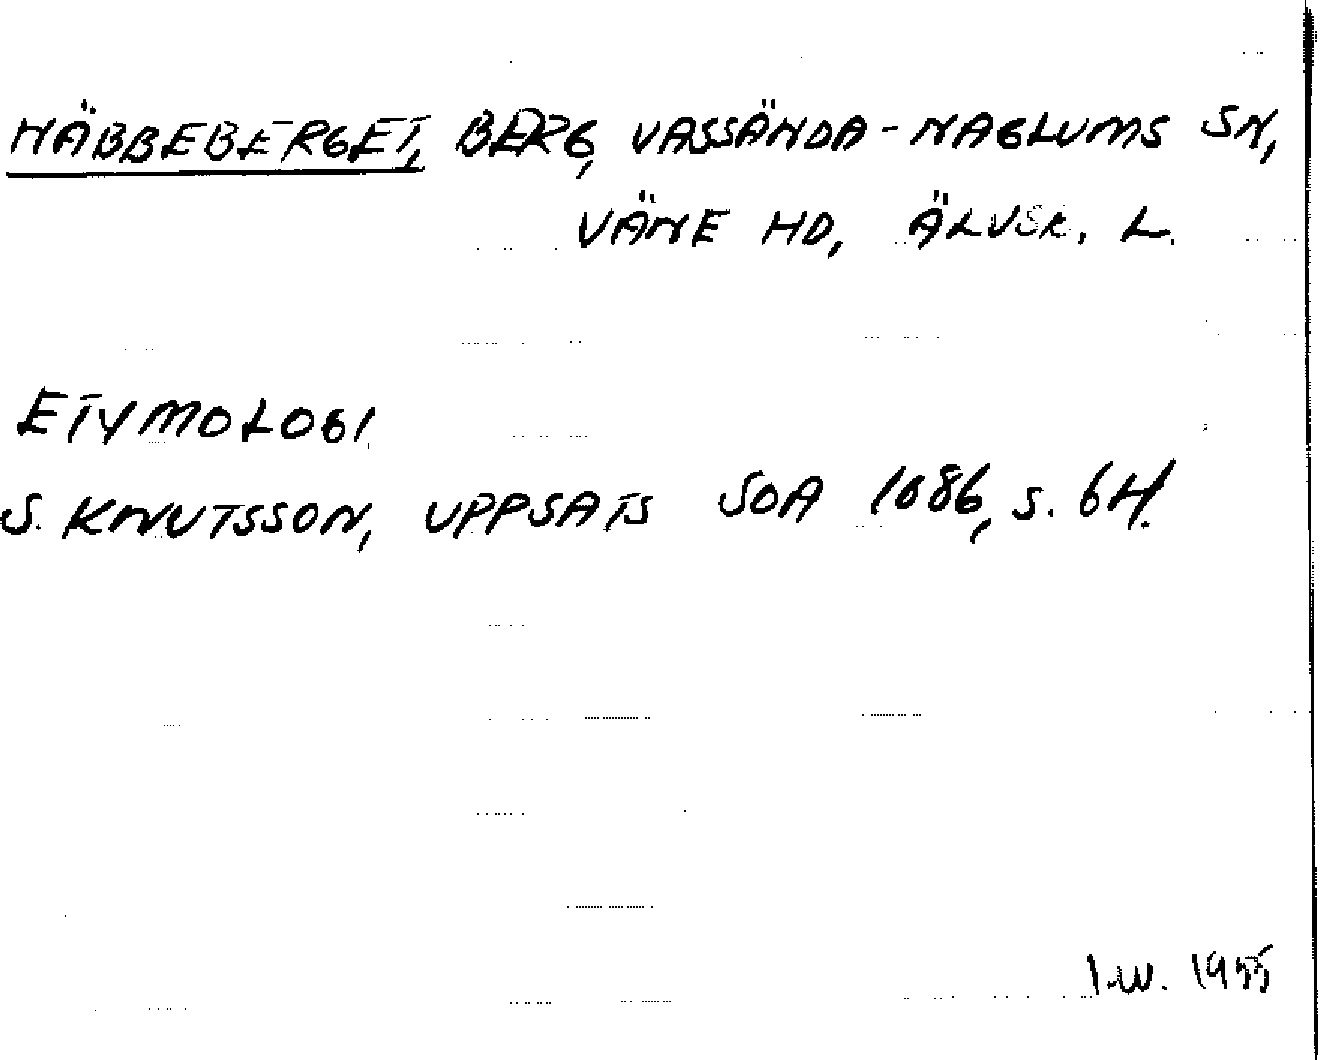 NÄBBEBERGET, BERG, VASSÄNDA-NAGLUMS SN,
VÄNE HD, ÄLVSB. L.
ETYMOLOGI
S. KNUTSSON, UPPSATS SOA 1086, S. 64.
I.W. 1955